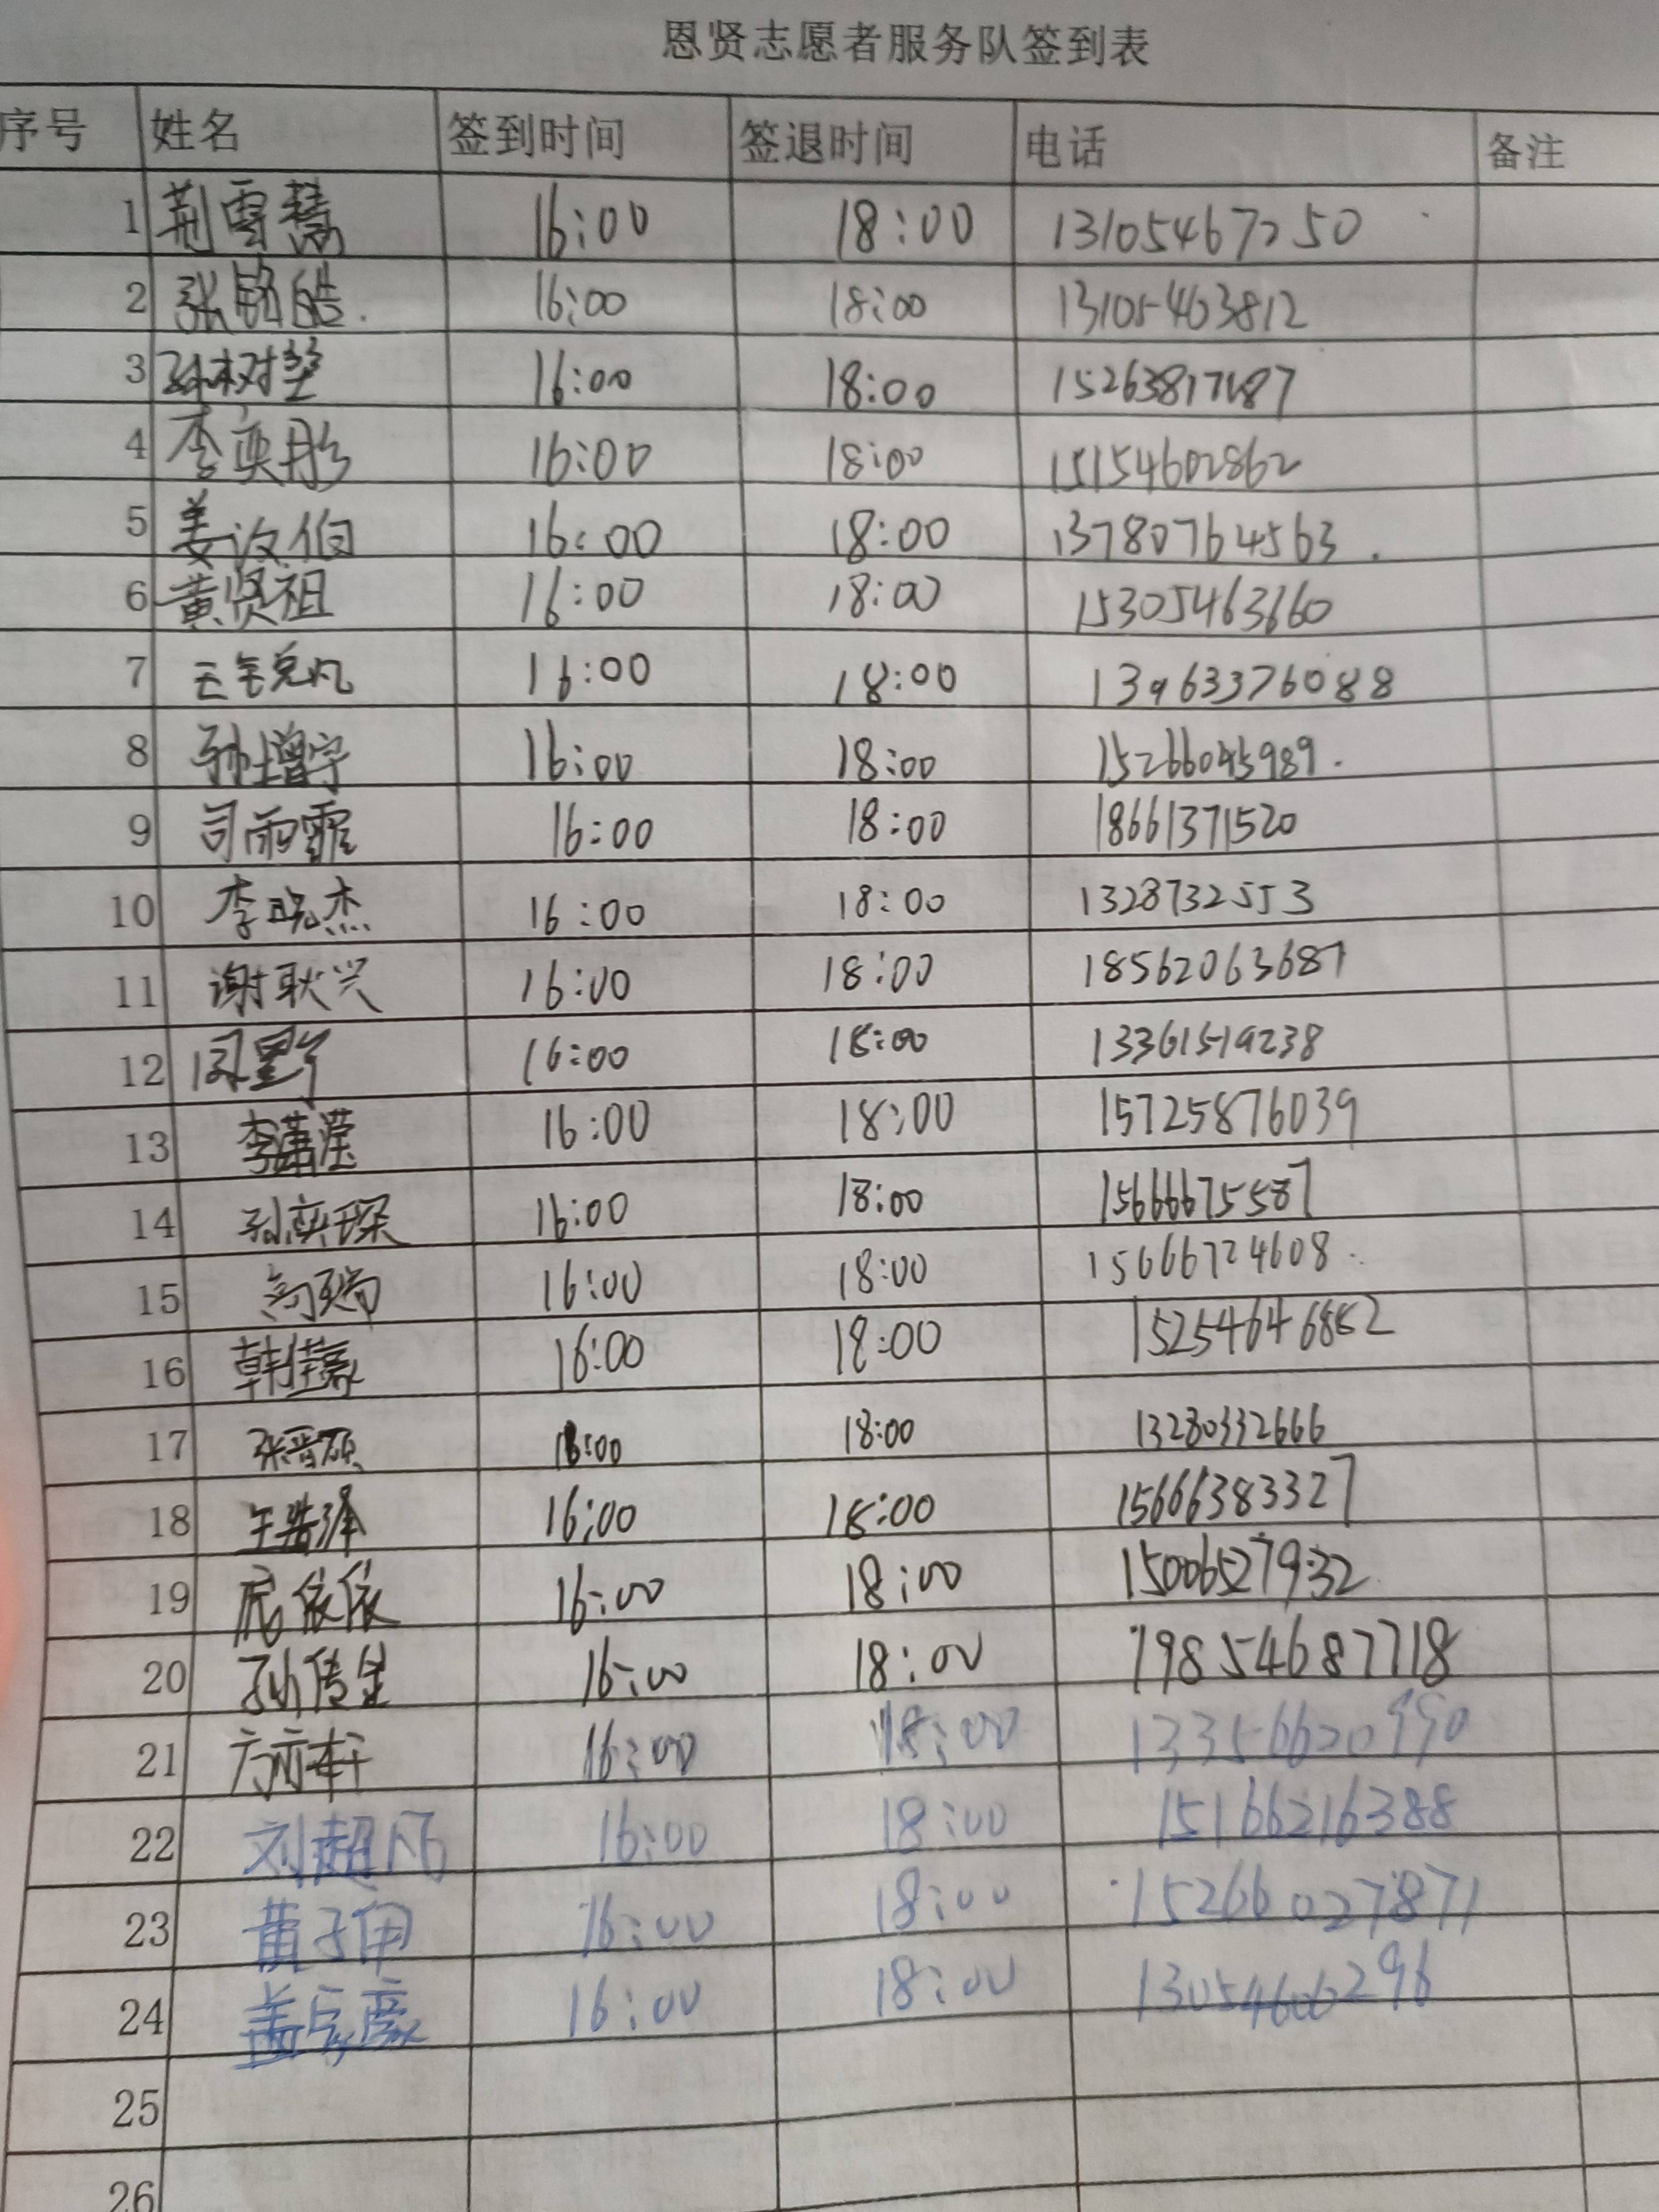 恩贤志愿者服务队签到表
序号 姓名 签到时间 签退时间 电话 备注
1 荆雪慧 16:00 18:00 13105467250
2 张铭皓 16:00 18:00 13105403812
3 孙树堃 16:00 18:00
4 李奕彤 16:00 18:00 15154602862
5 姜汶伯 16:00 18:00 13780764563
6 黄贤祖 16:00 18:00 15305463660
7 16:00 18:00 13963376088
8 孙增宇 16:00 18:00 15266045989
9 司雨霏 16:00 18:00 18661371520
10 李晓杰 16:00 18:00 1328732553
11 谢耿兴 16:00 18:00 18562063687
12 16:00 18:00 13361519238
13 李潇滢 16:00 18:00 15725876039
14 孙奕琛 16:00 18:00 15666675587
15 高瑞 16:00 18:00 15666724608
16 韩佳豪 16:00 18:00 15254646882
17 张晋硕 16:00 18:00 13280332666
18 王浩泽 16:00 18:00 15666383327
19 扈依依 16:00 18:00 15006527932
20 孙传金 16:00 18:00 19854687718
21 方亦轩 16:00 18:00 13356620990
22 刘超凡 16:00 18:00 15166216388
23 黄子伊 16:00 18:00 15266027871
24 盖家豪 16:00 18:00 13054606296
25
26